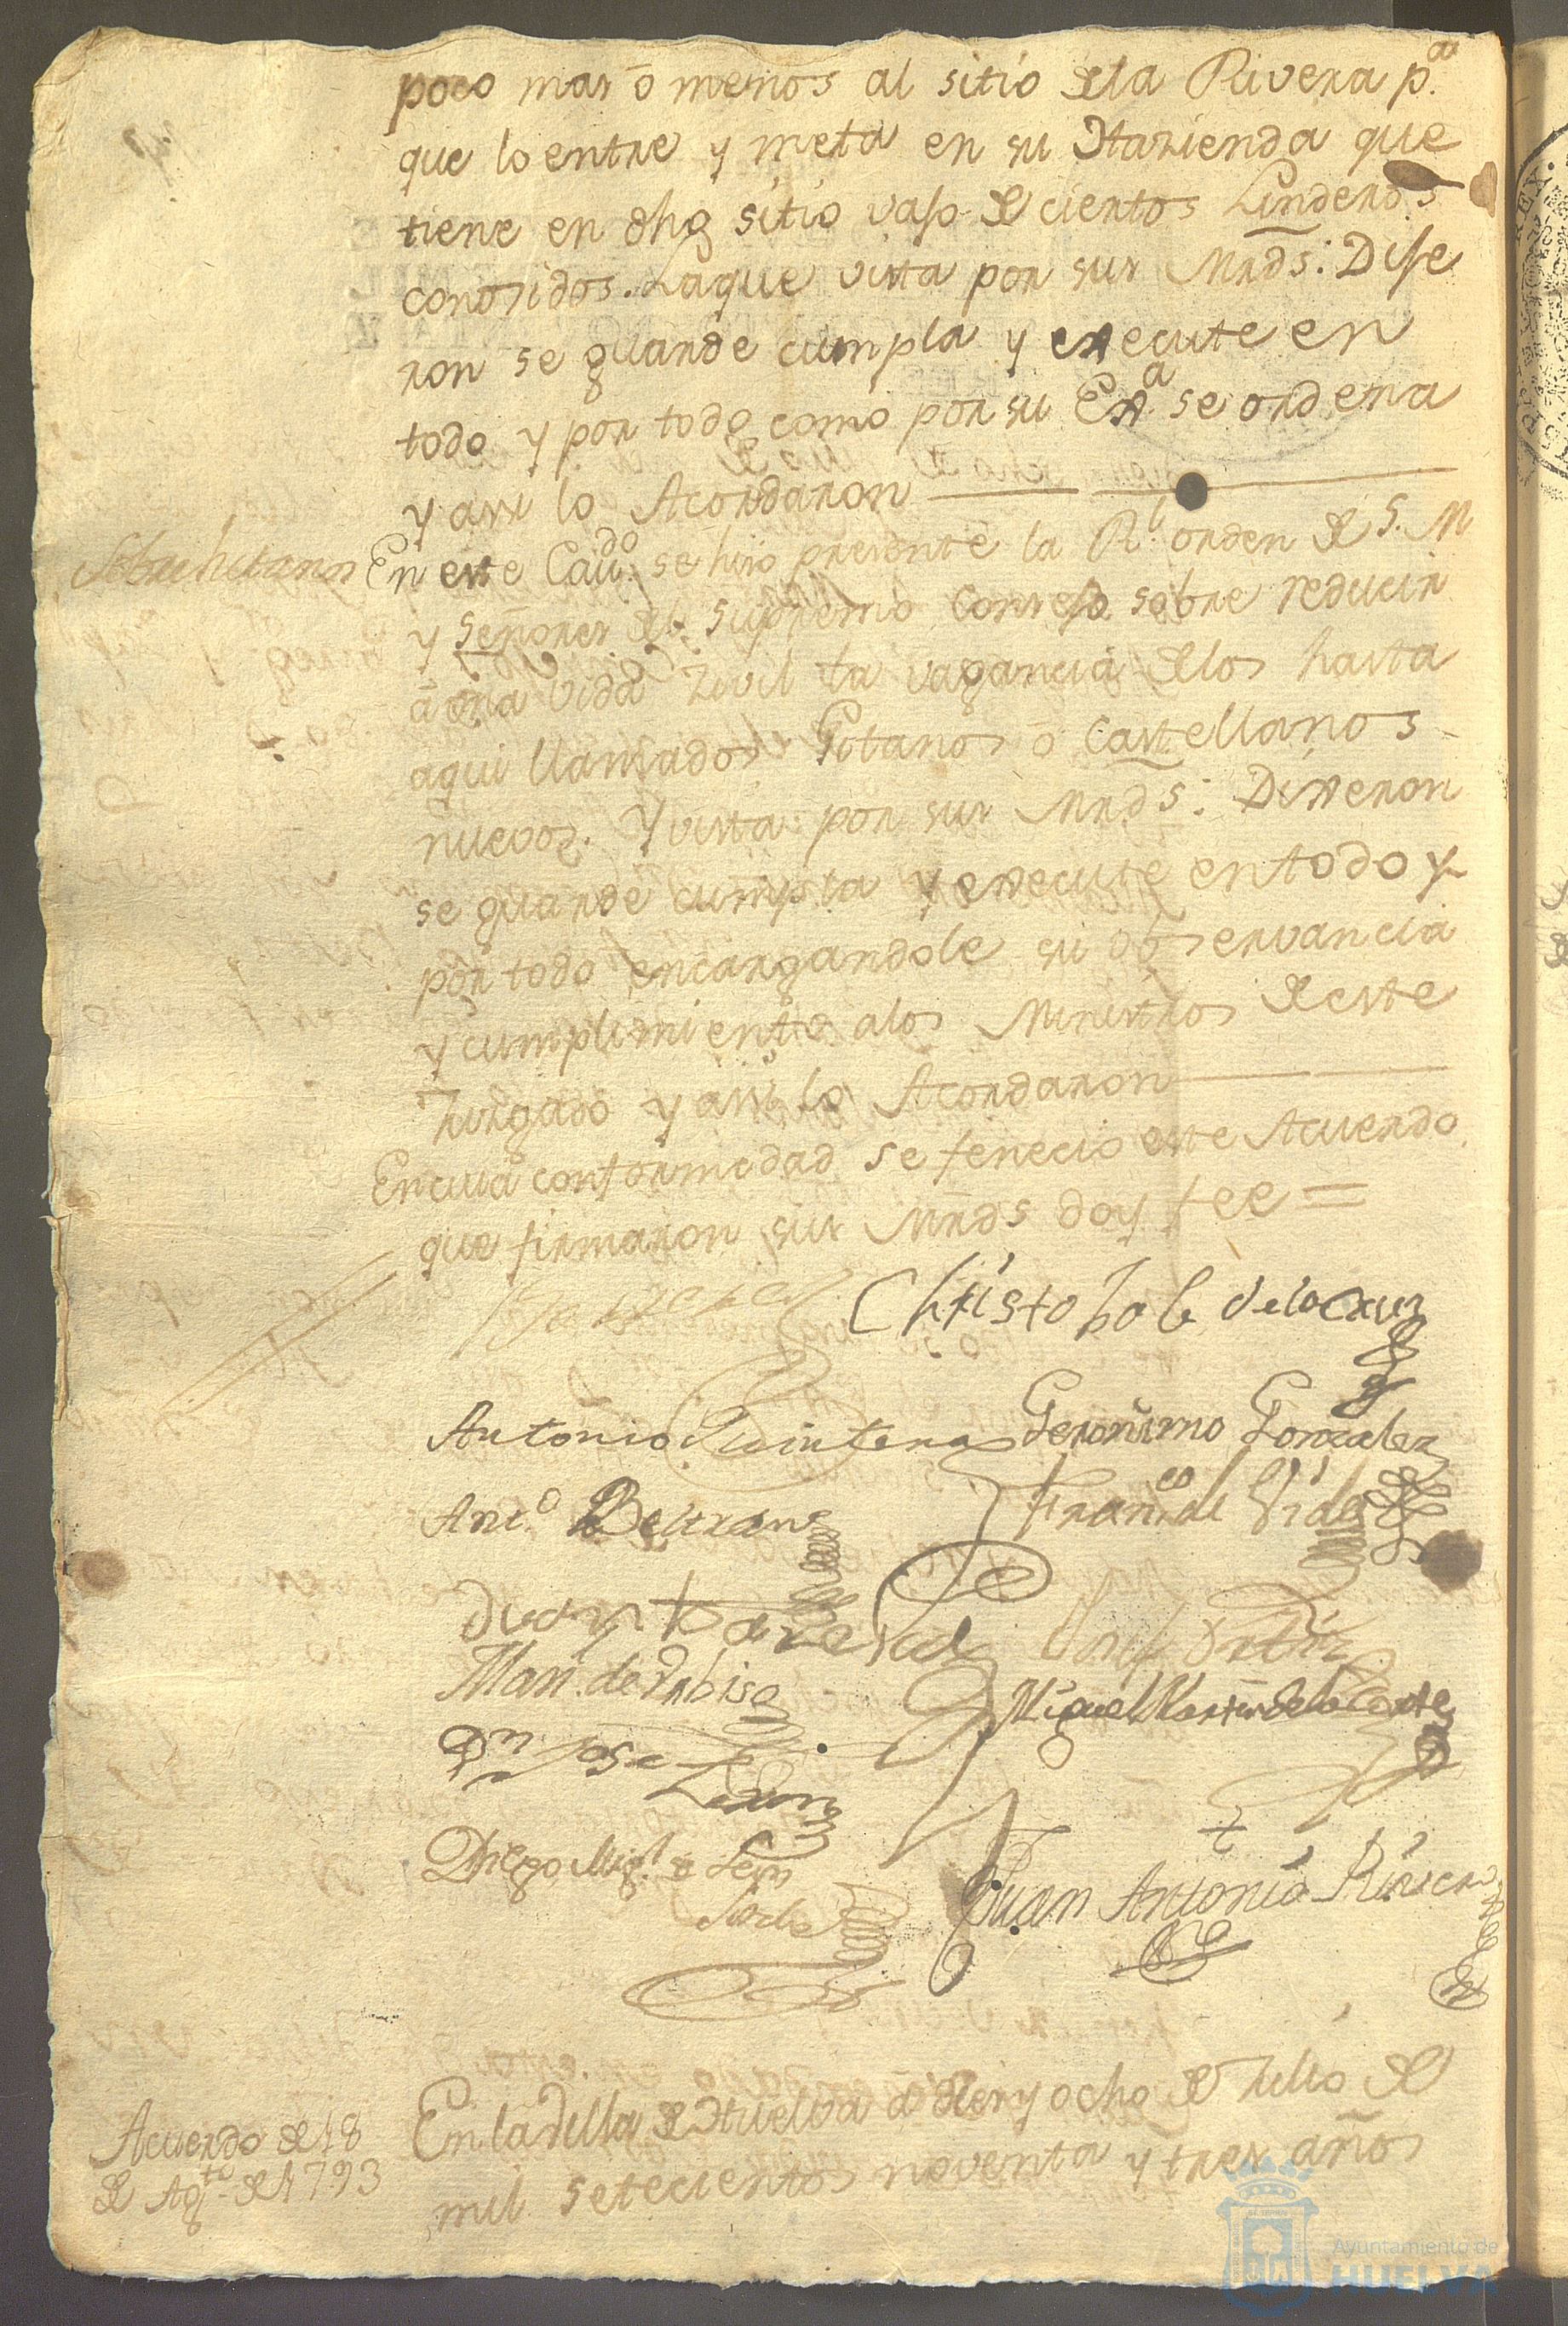 poco mas ó menos al sitio de la Rivera p.ª
que lo entre y meta en su Hazienda que
tiene en dho sitio vajo de ciertos Linderos
conosidos. Laque vista por sus Mrds: Dije
ron se guarde cumpla y execute en
todo y por todo como por su Exª se ordena
y assi lo Acordaron
Sobre Jitanos
En este Cau.do se hizo presente la Rl orden de S. M
y Señores del Supremo Consejo sobre reducir
á una vida Zivil la vagancia de los hasta
aqui llamados Gitanos ó Castellanos
nuevos. Y vista por sus Mrds: Dixeron
se guarde cumpla y execute entodo y
por todo encargandole su observancia
y cumplimiento alos Ministros de este
Jusgado y assi lo Acordaron
Encuia conformidad se fenecio este Acuerdo
que firmaron sus Mrds doy fee =
Christobal de la Cruz
Antonio Quintero Geronimo Gonzalez
Ant.o Beltran Fran.co de Vides
Josef Ortiz
Man. de
Miguel Martin de la Corte
Dn Jose Ledun
Diego Mig.l de Leon
Sorte
Juan Antonio Rivera
Acuerdo de 18
de Ag.to de 1793
En la Villa de Huelva a diez y ocho de Julio de
mil setecientos noventa y tres años
Ayuntamiento de
HUELVA